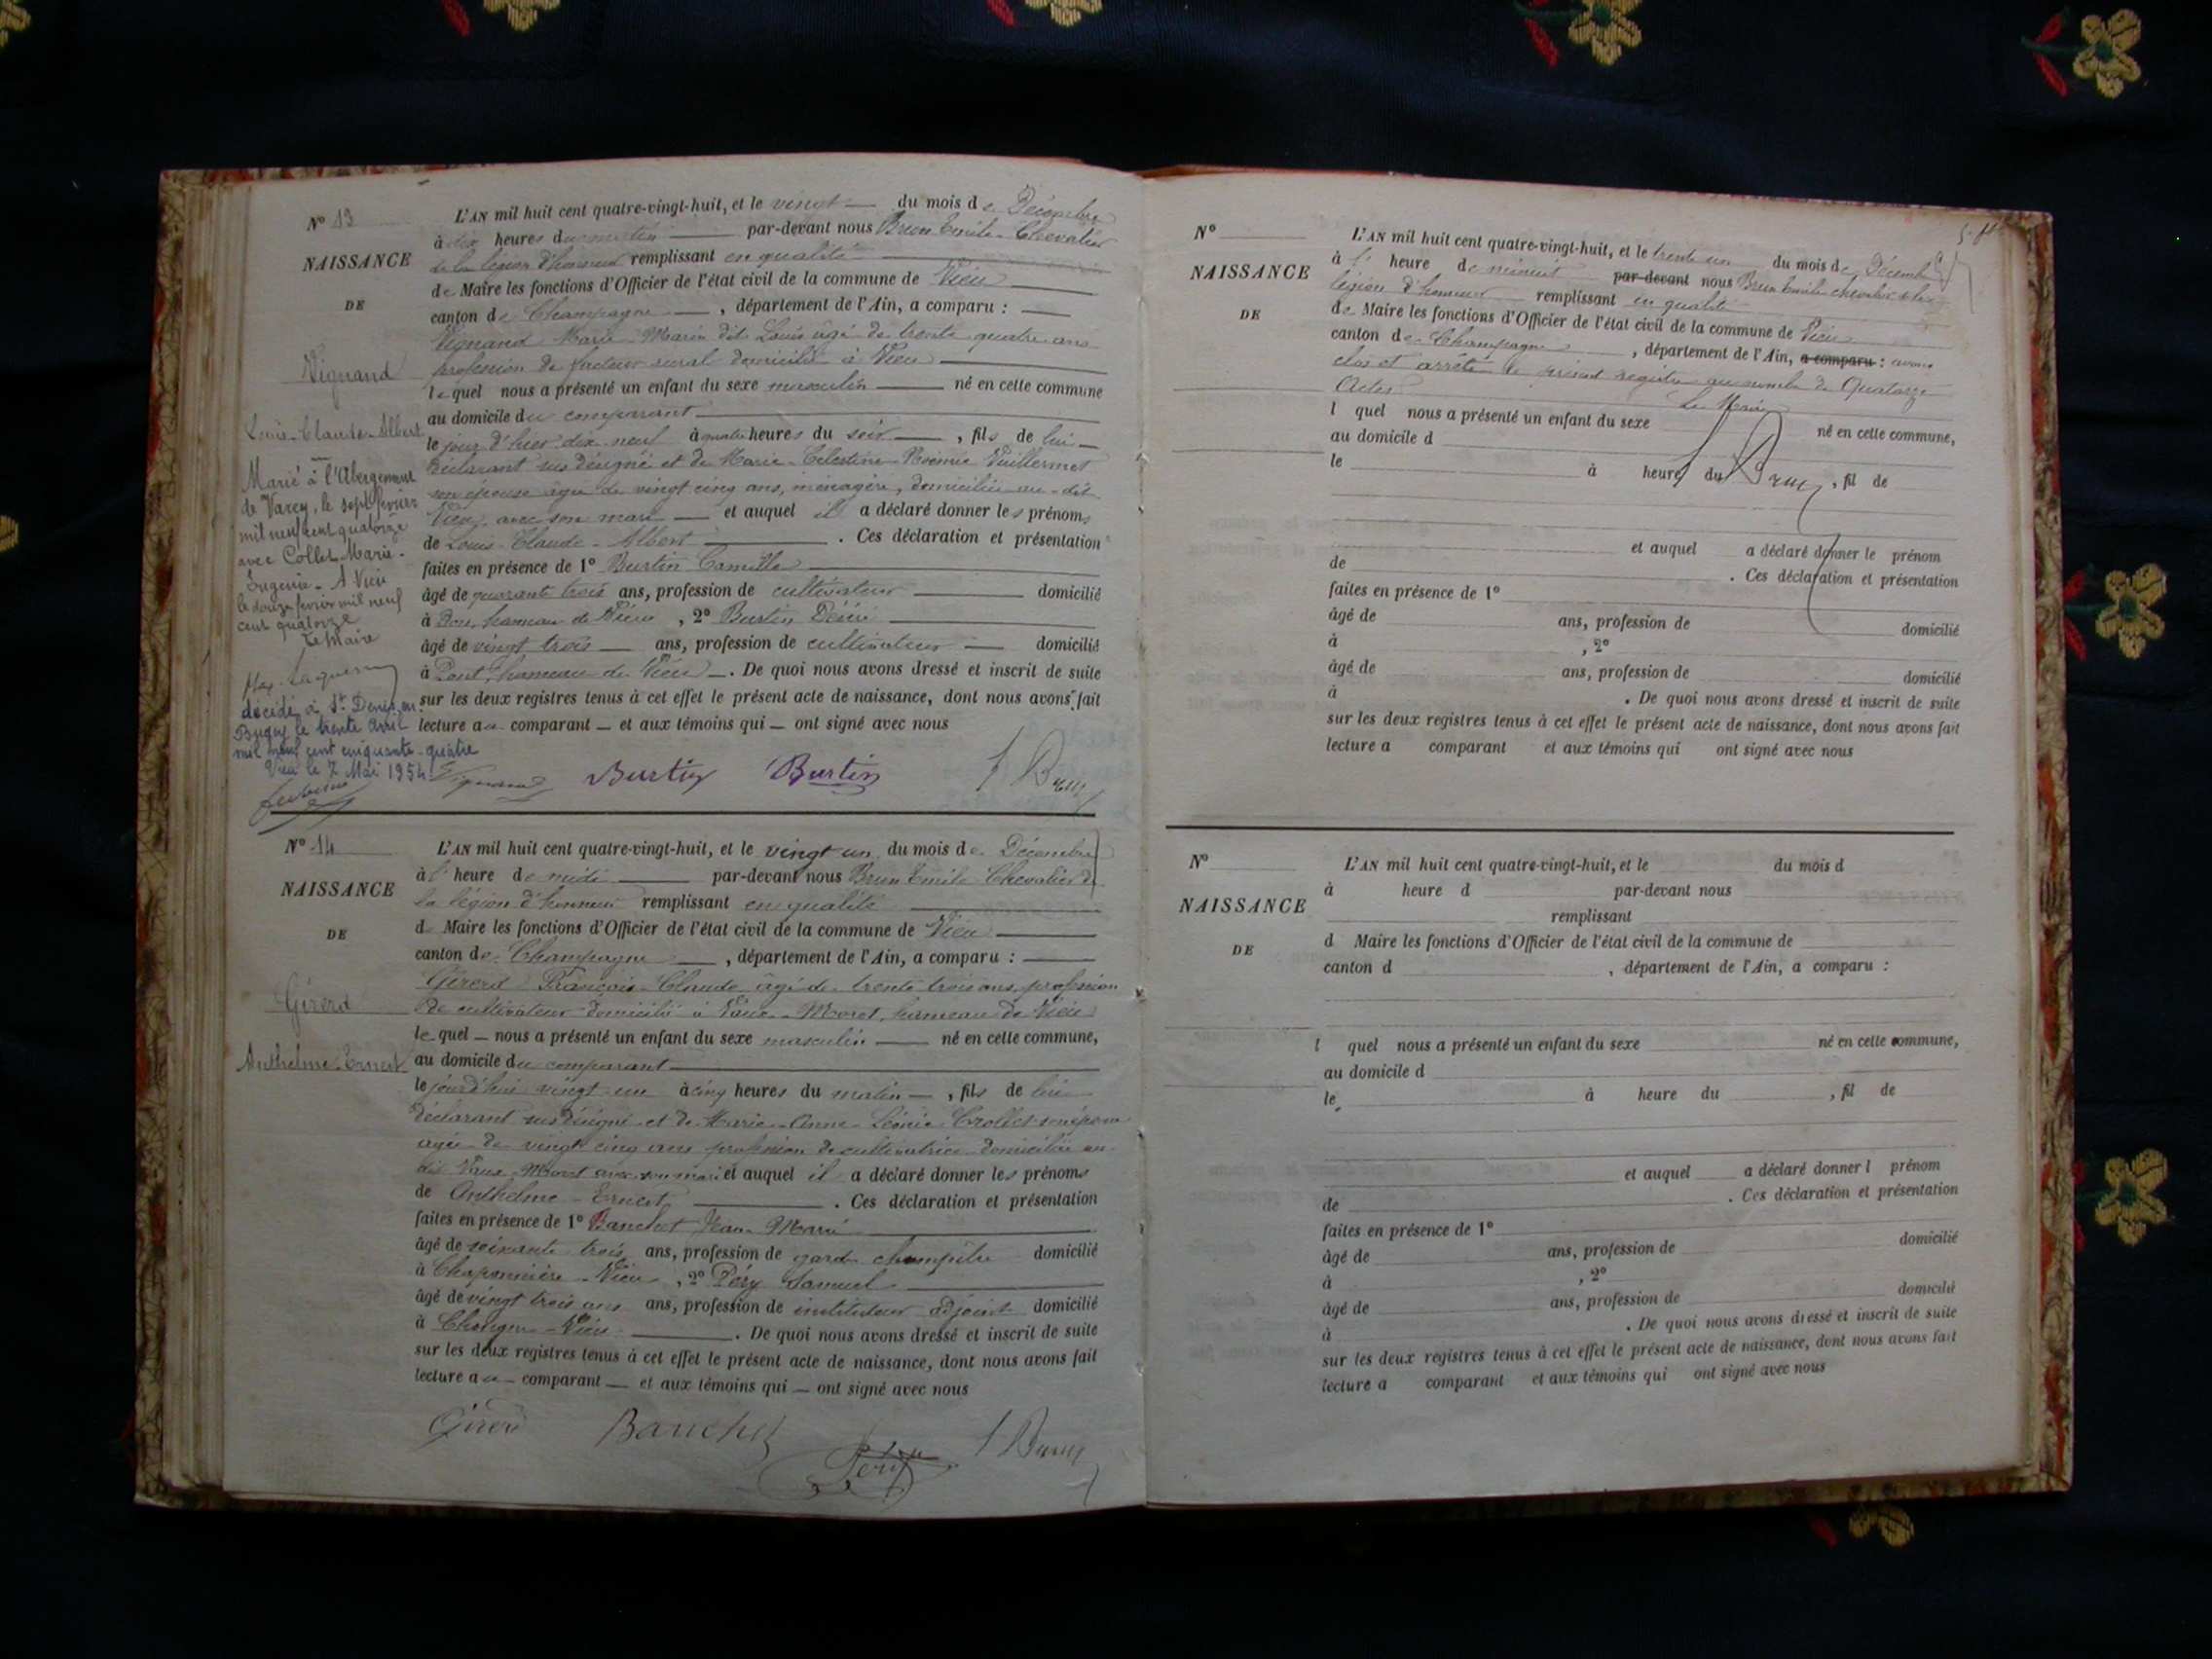 N° 13
NAISSANCE
DE
Vignand
Louis-Claude-Albert
Marié à l'Abergement
de Varey, le sept février
mil neuf cent quatorze
avec Collet Marie-
Eugénie - A Vieu
le douze février mil neuf
cent quatorze
Le Maire
décédé à St Denis en
Bugey le trente avril
mil neuf cent cinquante-quatre
Vieu le 7 Mai 1954
L'AN mil huit cent quatre-vingt-huit, et le vingt du mois de Décembre
à dix heures du matin par-devant nous Brun Emile Chevalier
de la légion d'honneur remplissant en qualité
de Maire les fonctions d'Officier de l'état civil de la commune de Vieu
canton de Champagne, département de l'Ain, a comparu :
Vignand Marie Marin dit Louis âgé de trente quatre ans
profession de facteur rural domicilié à Vieu
lequel nous a présenté un enfant du sexe masculin né en cette commune
au domicile du comparant
le jour d'hier dix neuf à quatre heures du soir, fils de lui
déclarant sus désigné et de Marie-Célestine-Noémie Vuillermet
son épouse âgée de vingt cinq ans, ménagère, domiciliée au-dit
Vieu avec son mari et auquel il a déclaré donner les prénoms
de Louis-Claude-Albert. Ces déclaration et présentation
faites en présence de 1° Burtin Camille
âgé de quarante trois ans, profession de cultivateur domicilié
à hameau de Vieu, 2° Burtin Désiré
âgé de vingt trois ans, profession de cultivateur domicilié
à hameau de Vieu. De quoi nous avons dressé et inscrit de suite
sur les deux registres tenus à cet effet le présent acte de naissance, dont nous avons fait
lecture au comparant et aux témoins qui ont signé avec nous
Vignand Burtin Burtin Brun
N° 14
NAISSANCE
DE
Gérerd
Anthelme-Ernest
L'AN mil huit cent quatre-vingt-huit, et le vingt un du mois de Décembre
à l'heure de midi par-devant nous Brun Emile Chevalier de
la légion d'honneur remplissant en qualité
de Maire les fonctions d'Officier de l'état civil de la commune de Vieu
canton de Champagne, département de l'Ain, a comparu :
Gérerd François-Claude âgé de trente trois ans, profession
de cultivateur domicilié à Vaux-Moret, hameau de Vieu
lequel nous a présenté un enfant du sexe masculin né en cette commune,
au domicile du comparant
le jourd'hui vingt un à cinq heures du matin, fils de lui
déclarant sus désigné et de Marie-Anne-Léonie Crollet son épouse
agée de vingt cinq ans profession de cultivatrice domiciliée au
dit Vaux-Moret avec son mari et auquel il a déclaré donner les prénoms
de Anthelme-Ernest. Ces déclaration et présentation
faites en présence de 1° Banchet Jean Marie
âgé de soixante trois ans, profession de garde champêtre domicilié
à Chaponnière-Vieu, 2° Péry Samuel
âgé de vingt trois ans ans, profession de instituteur adjoint domicilié
à Chongne-Vieu. De quoi nous avons dressé et inscrit de suite
sur les deux registres tenus à cet effet le présent acte de naissance, dont nous avons fait
lecture au comparant et aux témoins qui ont signé avec nous
Gérerd Banchet Péry Brun
N°
NAISSANCE
DE
L'AN mil huit cent quatre-vingt-huit, et le trente un du mois de Décembre
à l' heure de minuit par-devant nous Brun Emile chevalier de la
légion d'honneur remplissant en qualité
de Maire les fonctions d'Officier de l'état civil de la commune de Vieu
canton de Champagne, département de l'Ain, a comparu : avons
clos et arrêté le présent registre au nombre de Quatorze
Actes
Le Maire
l quel nous a présenté un enfant du sexe né en cette commune,
au domicile d
le à heure du Brun, fil de
et auquel a déclaré donner le prénom
de . Ces déclaration et présentation
faites en présence de 1°
âgé de ans, profession de domicilié
à , 2°
âgé de ans, profession de domicilié
à . De quoi nous avons dressé et inscrit de suite
sur les deux registres tenus à cet effet le présent acte de naissance, dont nous avons fait
lecture a comparant et aux témoins qui ont signé avec nous
N°
NAISSANCE
DE
L'AN mil huit cent quatre-vingt-huit, et le du mois d
à heure d par-devant nous
remplissant
d Maire les fonctions d'Officier de l'état civil de la commune de
canton d , département de l'Ain, a comparu :
l quel nous a présenté un enfant du sexe né en cette commune,
au domicile d
le à heure du , fil de
et auquel a déclaré donner l prénom
de . Ces déclaration et présentation
faites en présence de 1°
âgé de ans, profession de domicilié
à , 2°
âgé de ans, profession de domicilié
à . De quoi nous avons dressé et inscrit de suite
sur les deux registres tenus à cet effet le présent acte de naissance, dont nous avons fait
lecture a comparant et aux témoins qui ont signé avec nous